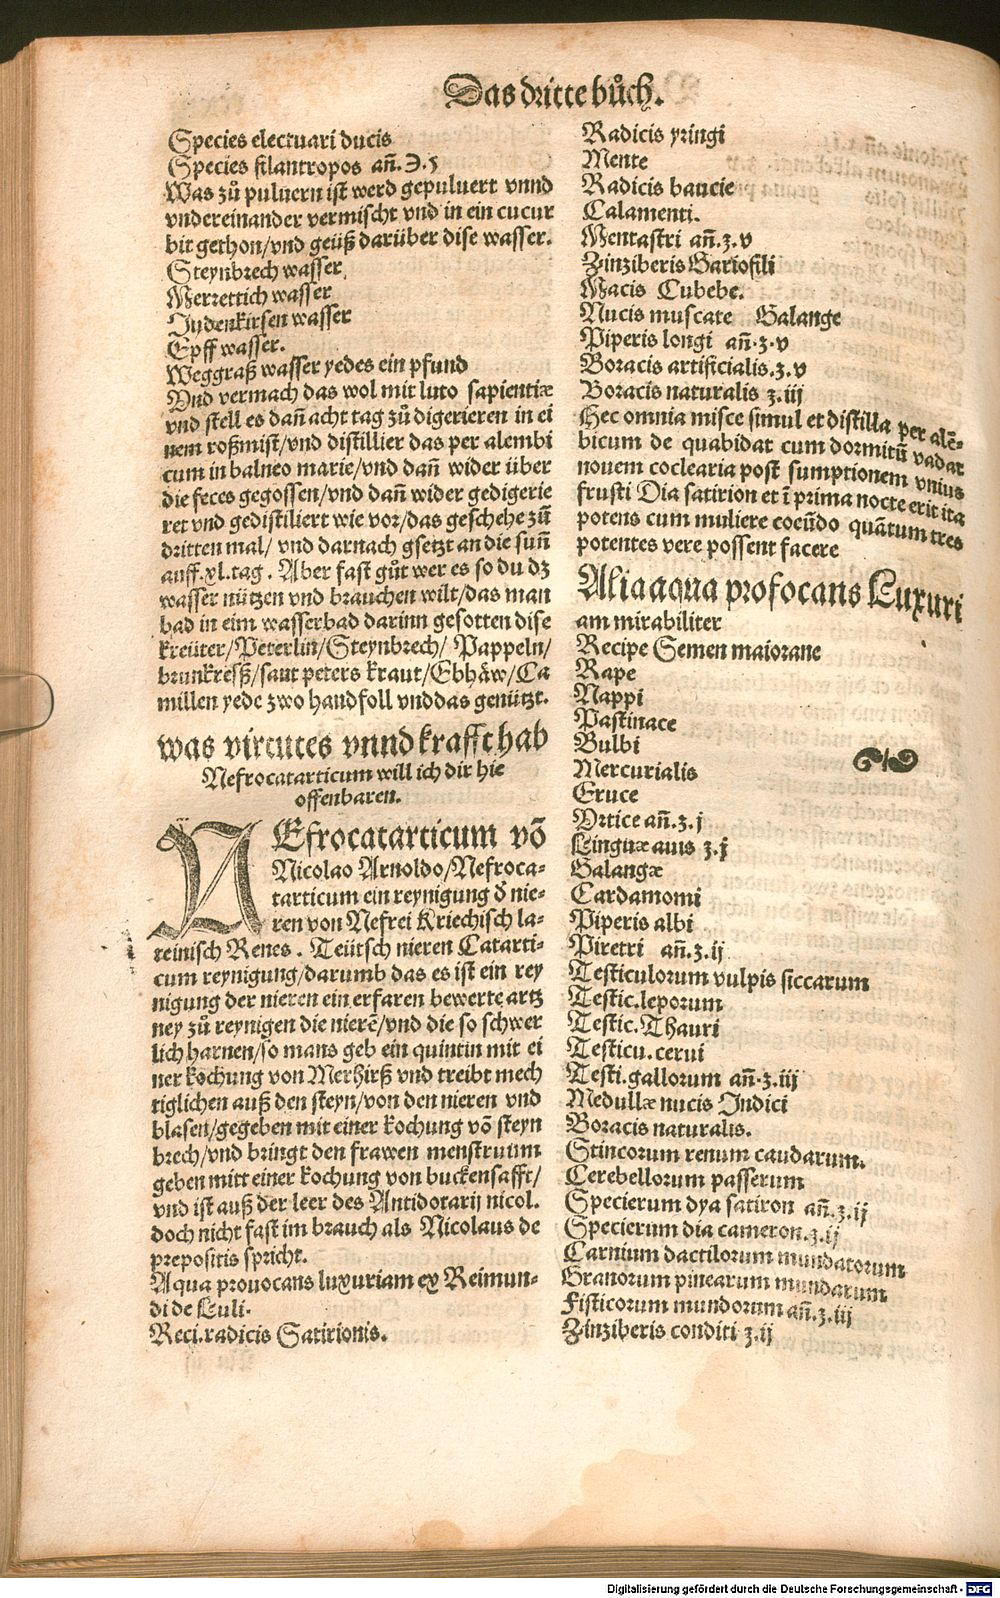 Das dritte bůch.
Species electuari ducis
Species filantropos añ.℈.5
Was zů puluern ist werd gepuluert vnnd
vndereinander vermischt vnd in ein cucur
bit gethon/vnd geüß darüber dise wasser.
Steynbrech wasser
Merrettich wasser
Judenkirsen wasser
Epff wasser.
Weggraß wasser yedes ein pfund
Vnd vermach das wol mit luto sapientiæ
vnd stell es dañ acht tag zů digerieren in ei
nem roßmist/vnd distillier das per alembi
cum in balneo marie/vnd dañ wider über
die feces gegossen/vnd dañ wider gedigerie
ret vnd gedistiliert wie vor/das geschehe zů
dritten mal/ vnd darnach gsetzt an die suñ
auff.xl.tag. Aber fast gůt wer es so du dz
wasser nützen vnd brauchen wilt/das man
bad in eim wasserbad darinn gesotten dise
kreüter/Peterlin/Steynbrech/ Pappeln/
brunkreß/sant peters kraut/Ebhäw/Ca
millen yede zwo handfoll vnd das genützt.
was virtutes vnnd krafft hab
Nefrocatarticum will ich dir hie
offenbaren.
NEfrocatarticum võ
Nicolao Arnoldo/Nefroca-
tarticum ein reynigung ð nie-
ren von Nefrei Kriechisch la-
teinisch Renes. Teütsch nieren Catarti-
cum reynigung/darumb das es ist ein rey
nigung der nieren ein erfaren bewerte artz
ney zů reynigen die nierẽ/vnd die so schwer
lich harnen/so mans geb ein quintin mit ei
ner kochung von Merhirß vnd treibt mech
tiglichen auß den steyn/von den nieren vnd
blasen/gegeben mit einer kochung võ steyn
brech/vnd bringt den frawen menstruum
geben mitt einer kochung von buckensafft/
vnd ist auß der leer des Antidotarij nicol.
doch nicht fast im brauch als Nicolaus de
prepositis spricht.
Aqua prouocans luxuriam ex Reimun-
di de Luli.
Reci.radicis Satirionis.
Radicis yringi
Mente
Radicis baucie
Calamenti.
Mentastri añ.ʒ.v
Zinziberis Gariofili
Macis Cubebe.
Nucis muscate Galange
Piperis longi añ.ʒ.v
Boracis artificialis.ʒ.v
Boracis naturalis ʒ.iij
Hec omnia misce simul et distilla per alẽ-
bicum de qua bidat cum dormitũ vadat
nouem coclearia post sumptionem vnius
frusti Dia satirion et ĩ prima nocte erit ita
potens cum muliere coeũdo quãtum tres
potentes vere possent facere
Alia aqua profocans Luxuri
am mirabiliter
Recipe Semen maiorane
Rape
Nappi
Pastinace
Bulbi
Mercurialis
Eruce
Vrtice añ.ʒ.j
Linguæ auis ʒ.j
Galangæ
Cardamomi
Piperis albi
Piretri añ.ʒ.ij
Testiculorum vulpis siccarum
Testic.leporum
Testic.Thauri
Testicu.cerui
Testi.gallorum añ.ʒ.iij
Medullæ nucis Indici
Boracis naturalis.
Stincorum renum caudarum.
Cerebellorum passerum
Specierum dya satiron añ.ʒ.ij
Specierum dia cameron.ʒ.ij
Carnium dactilorum mundatorum
Granorum pinearum mundarum
Fisticorum mundorum añ.ʒ.iij
Zinziberis conditi ʒ.ij
Digitalisierung gefördert durch die Deutsche Forschungsgemeinschaft - DFG